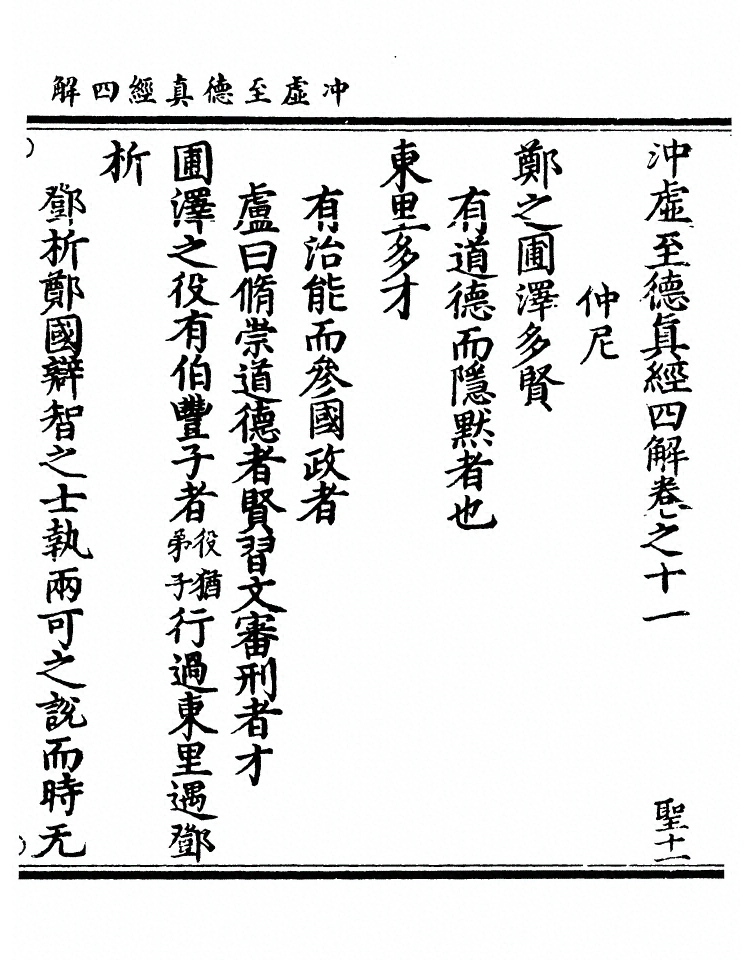 沖虛至德真經四解
沖虛至德眞經四解卷之十一
聖十一
仲尼
鄭之圃澤多賢
有道德而隱默者也
東里多才
有治能而參國政者
盧曰脩崇道德者賢習文審刑者才
圃澤之役有伯豐子者役猶弟子行過東里遇鄧
析
鄧析鄭國辯智之士執兩可之說而時无